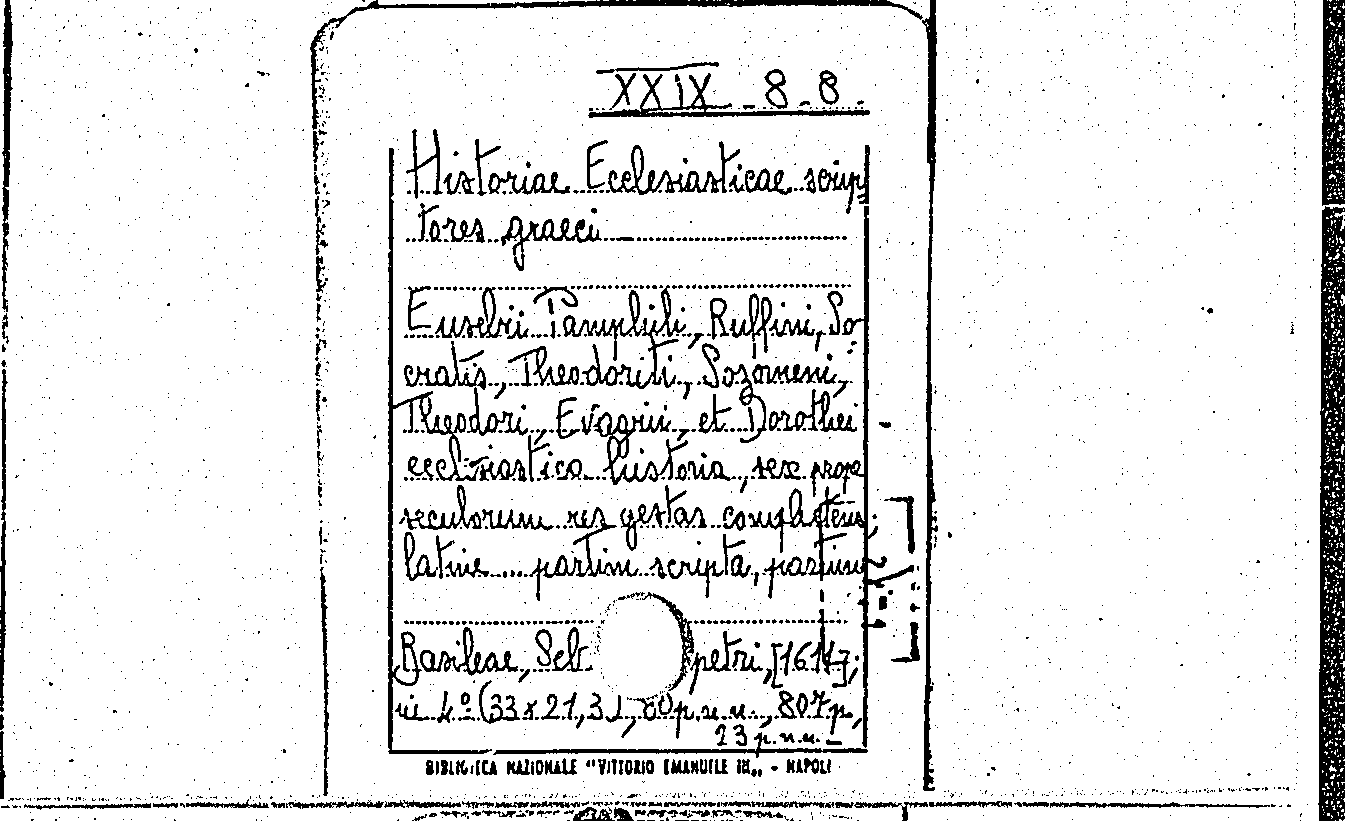 XXIX - 8 - 8.
Historiae Ecclesiasticae scrip=
tores graeci
Eusebii Pamphili, Ruffini, So=
cratis, Theodoriti, Sozomeni,
Theodori, Evagrii, et Dorothei
ecclesiastica historia, sex prope
seculorum res gestas complectens;
latine ... partim scripta, partim
Basileae, Seb. petri, [1611];
in 4º (33 x 21,3), p.n.n., 807 p.,
23 p.n.n. _
BIBLIOTECA NAZIONALE "VITTORIO EMANUELE III" - NAPOLI